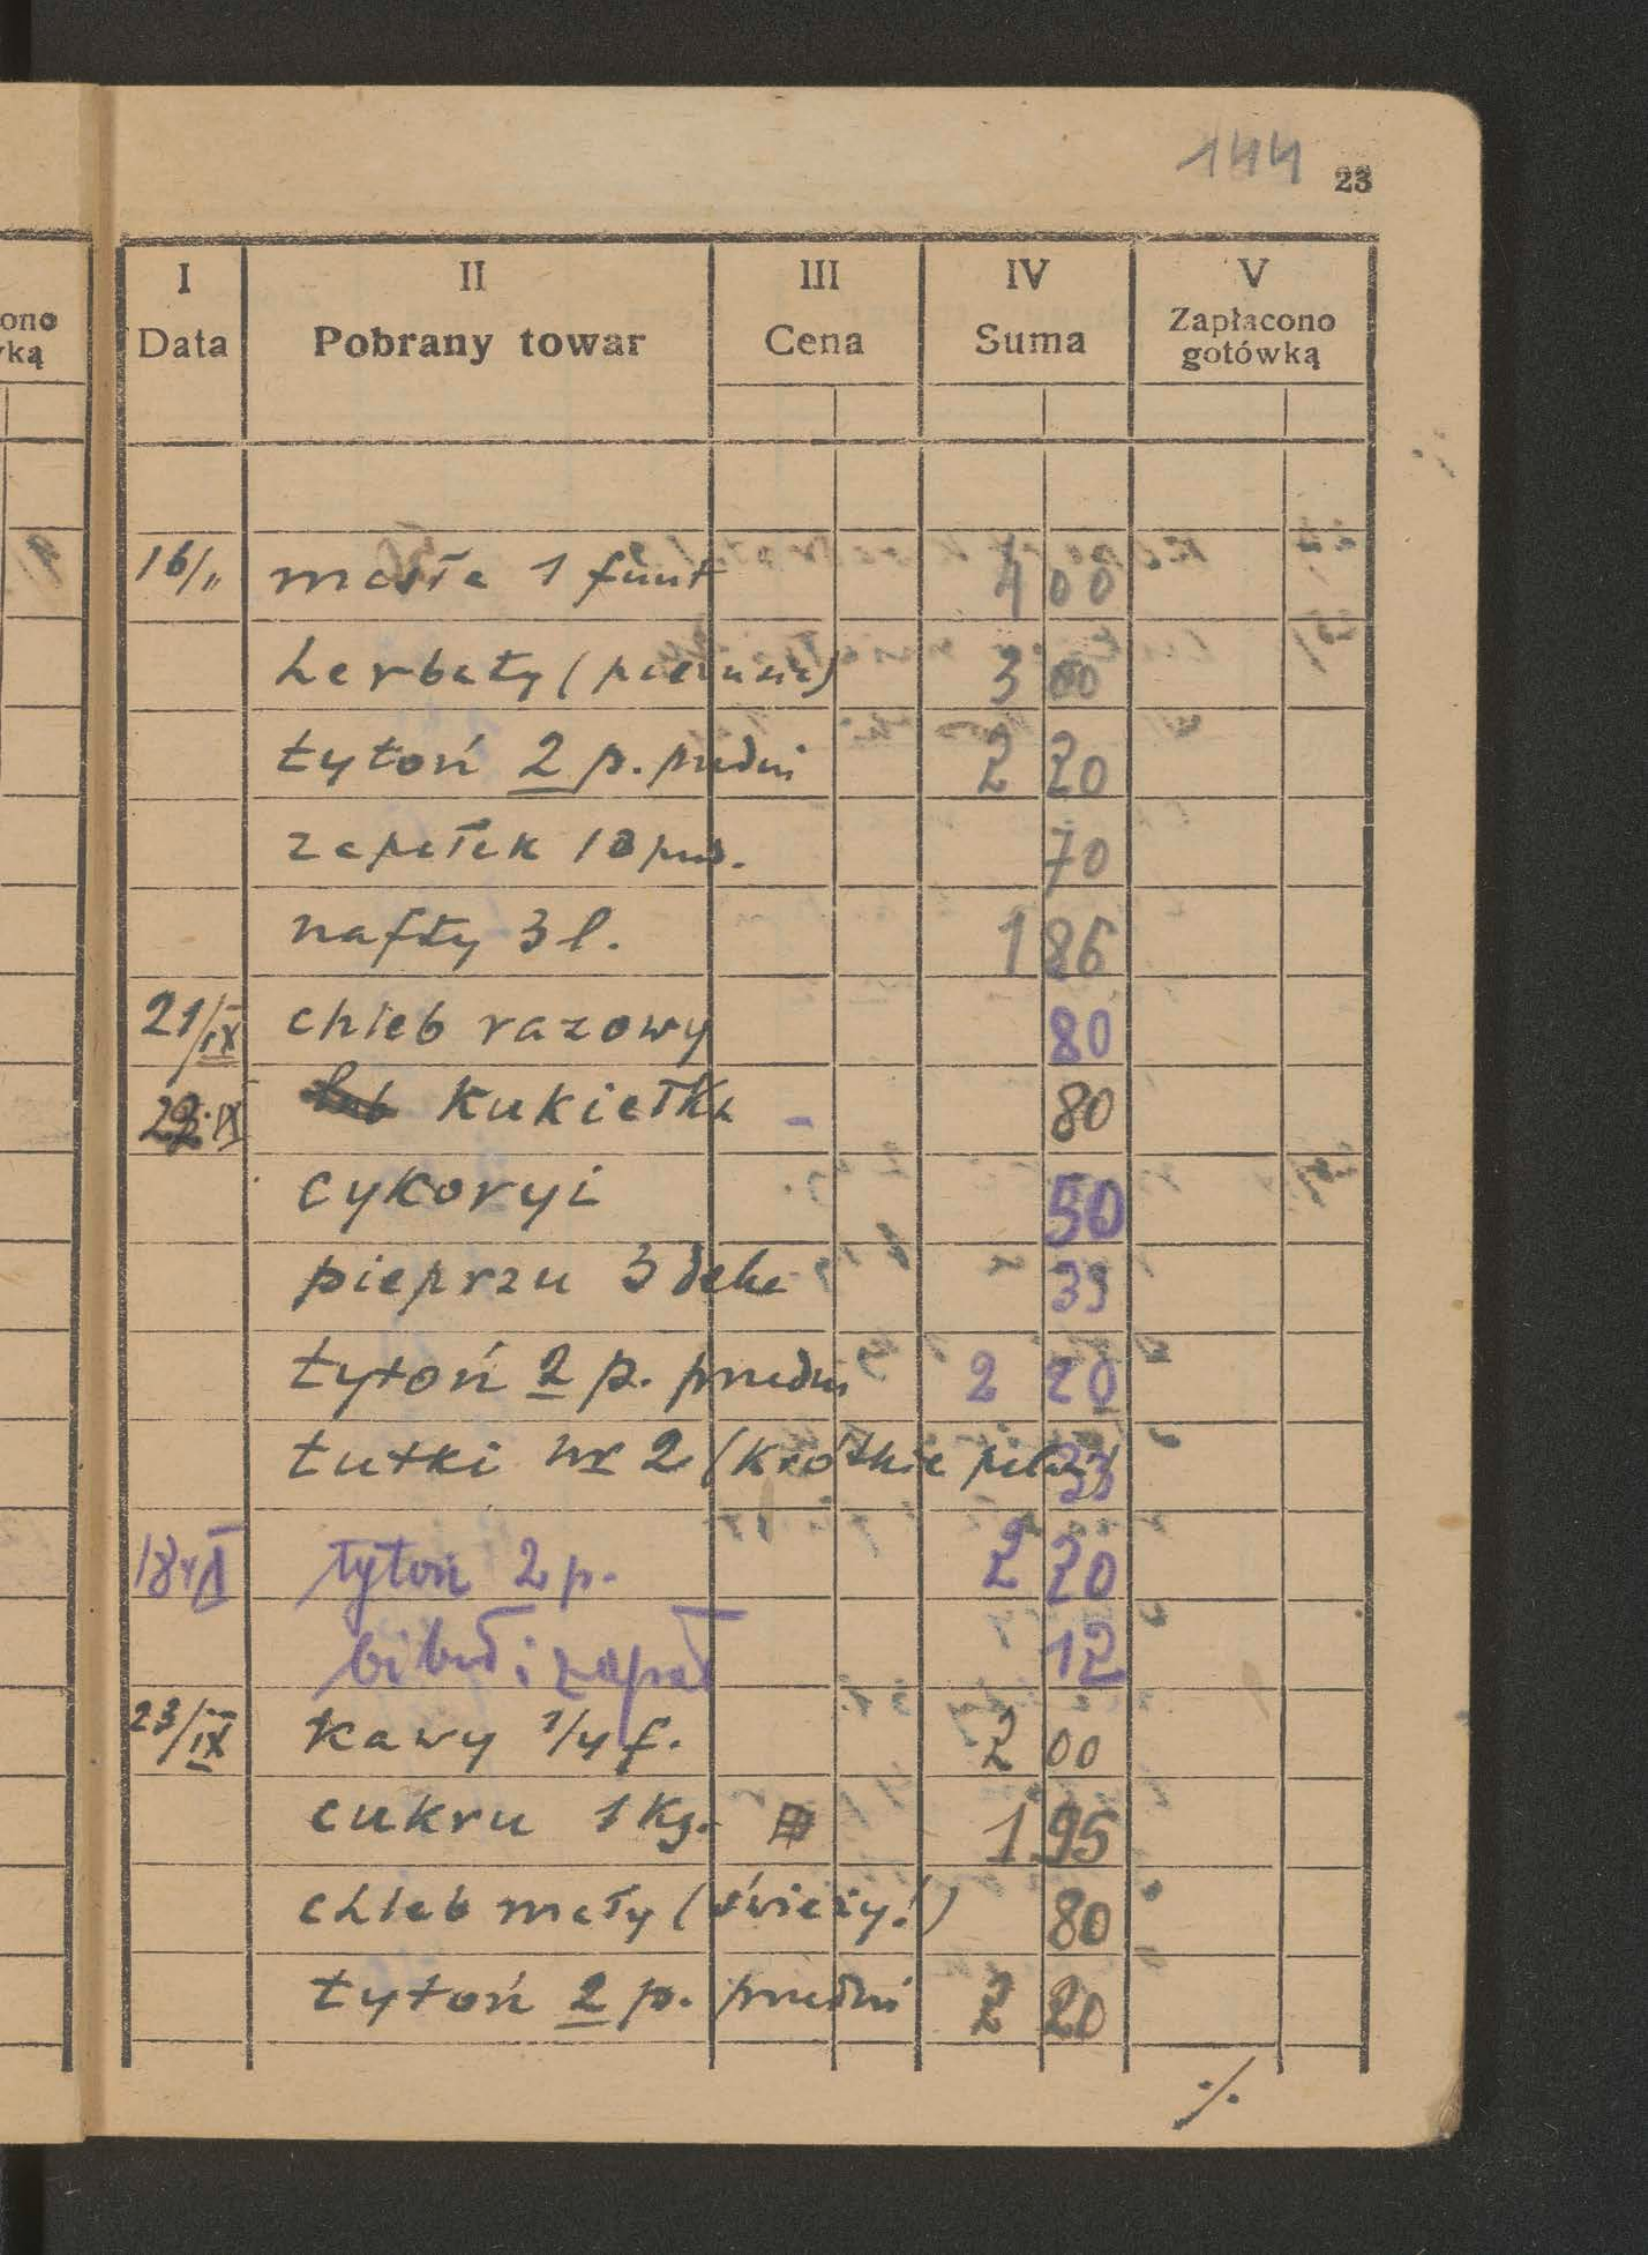 144 23
ono
rką
I II III IV V
Data Pobrany towar Cena Suma Zapłacono gotówką
16/" masła 1 funt 4 00
herbaty ( 3 00
tytoń 2 p. przedni 2 20
zapałek 10 pud. 70
nafty 3 l. 1 86
21/IX chleb razowy 80
22.IX kukiełka - 80
cykoryi 50
pieprzu 3 deka 39
tytoń 2 p. przedni 2 20
tutki nr 2 (krótkie 33
18 tytoń 2 p. 2 20
bibuł i zapał 12
23/IX kawy 1/4 f. 2 00
cukru 1 kg. 1 95
chleb mały (świeży!) 80
tytoń 2 p. przedni 2 20
·/.